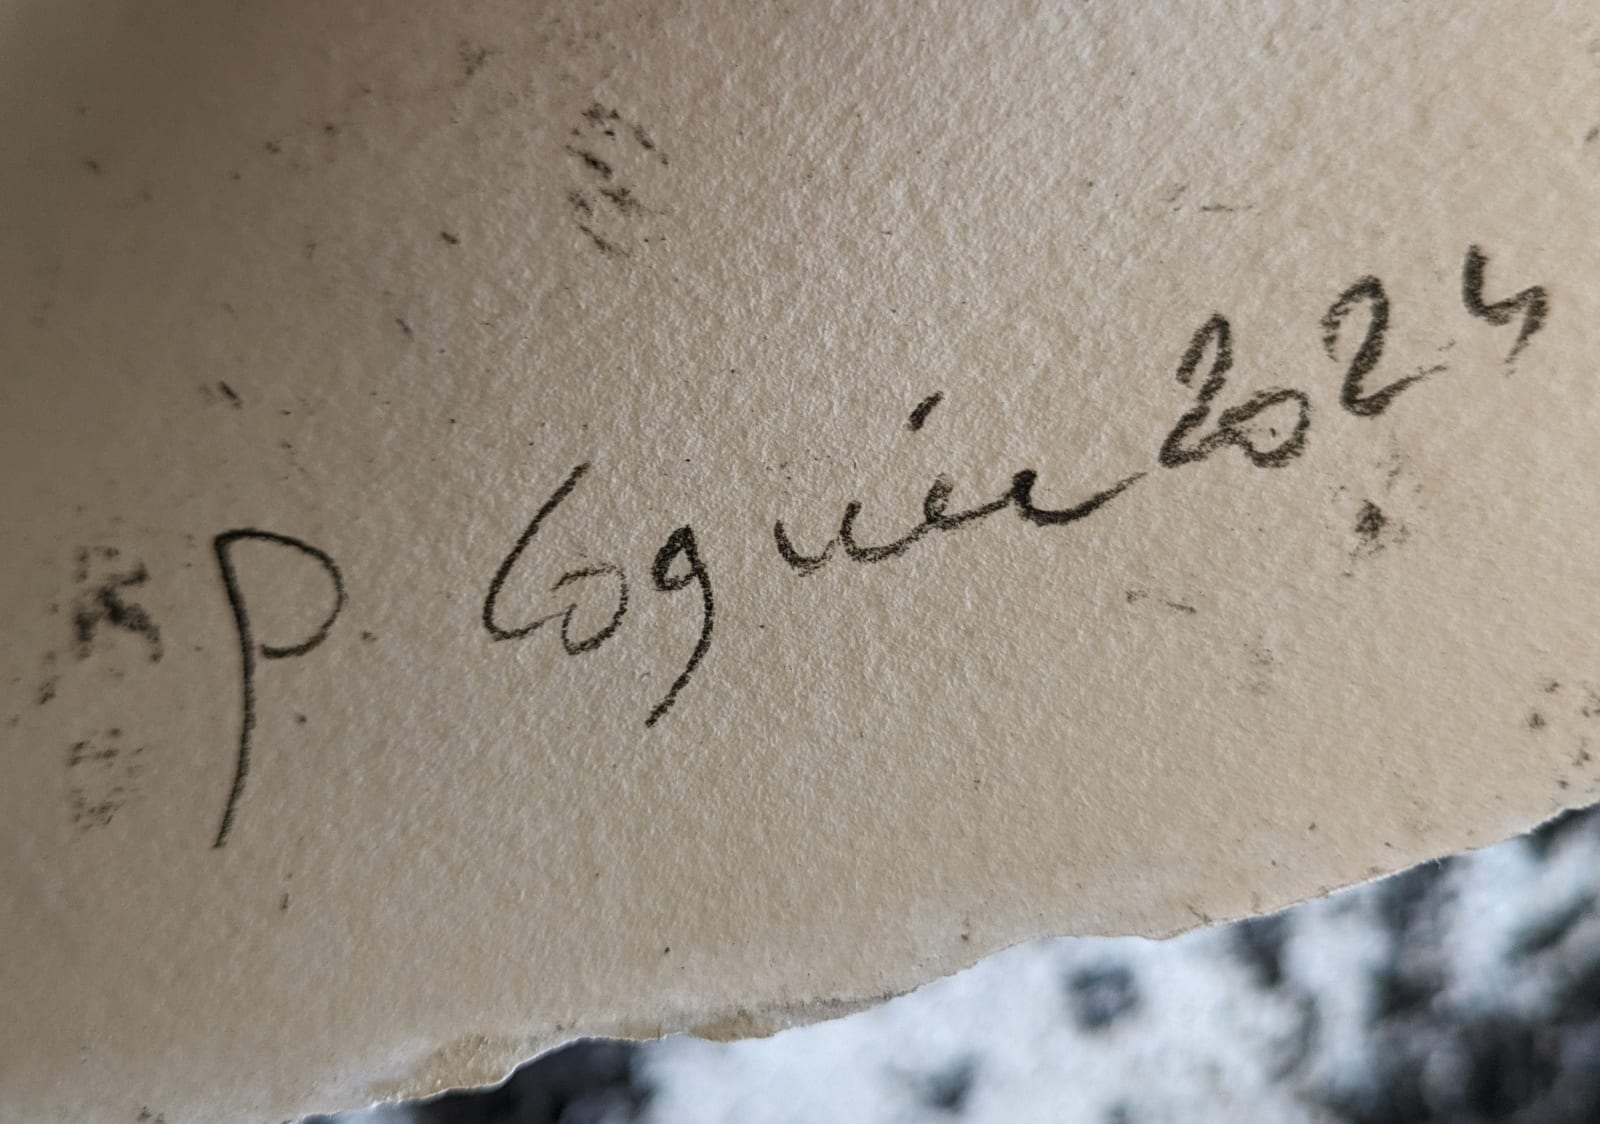 P. Coguin 2024